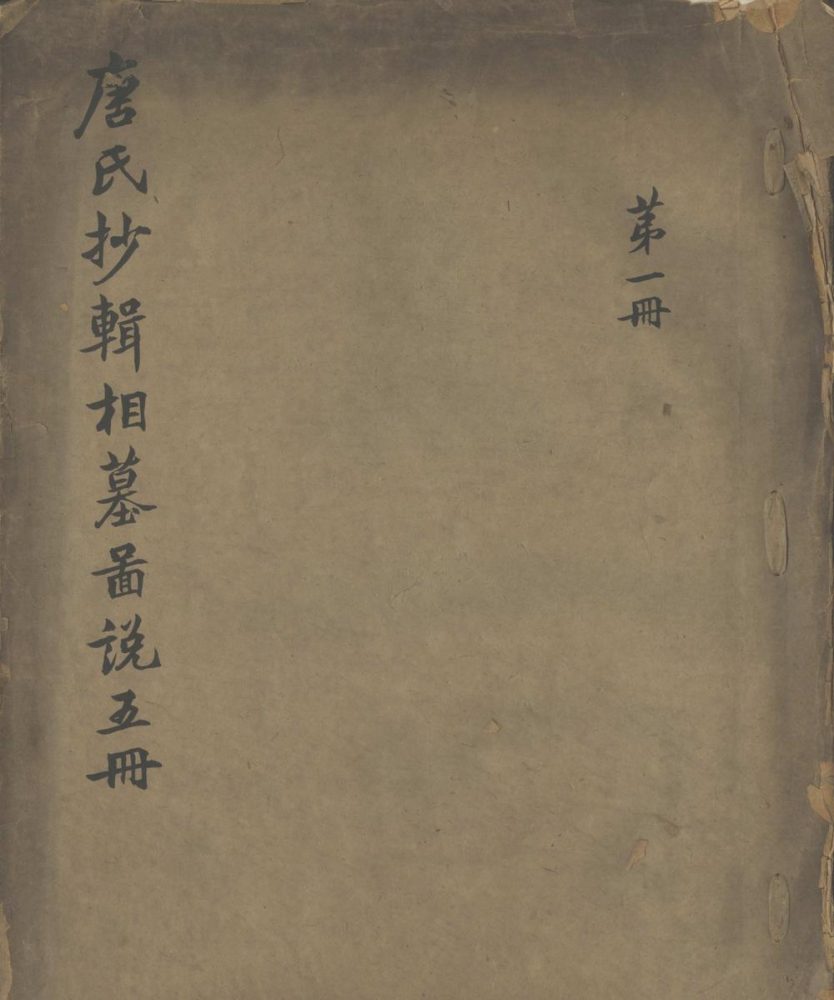 苐一冊
唐氏抄輯相墓啚説五冊